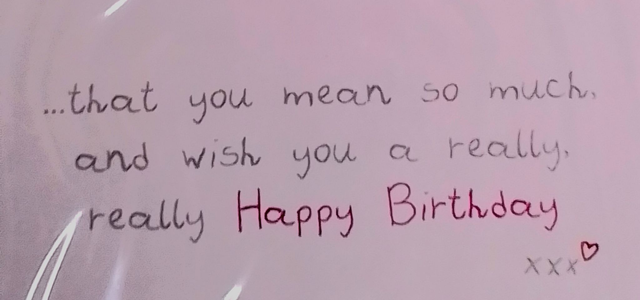 ...that you mean so much,
and wish you a really,
really Happy Birthday
xxx♡